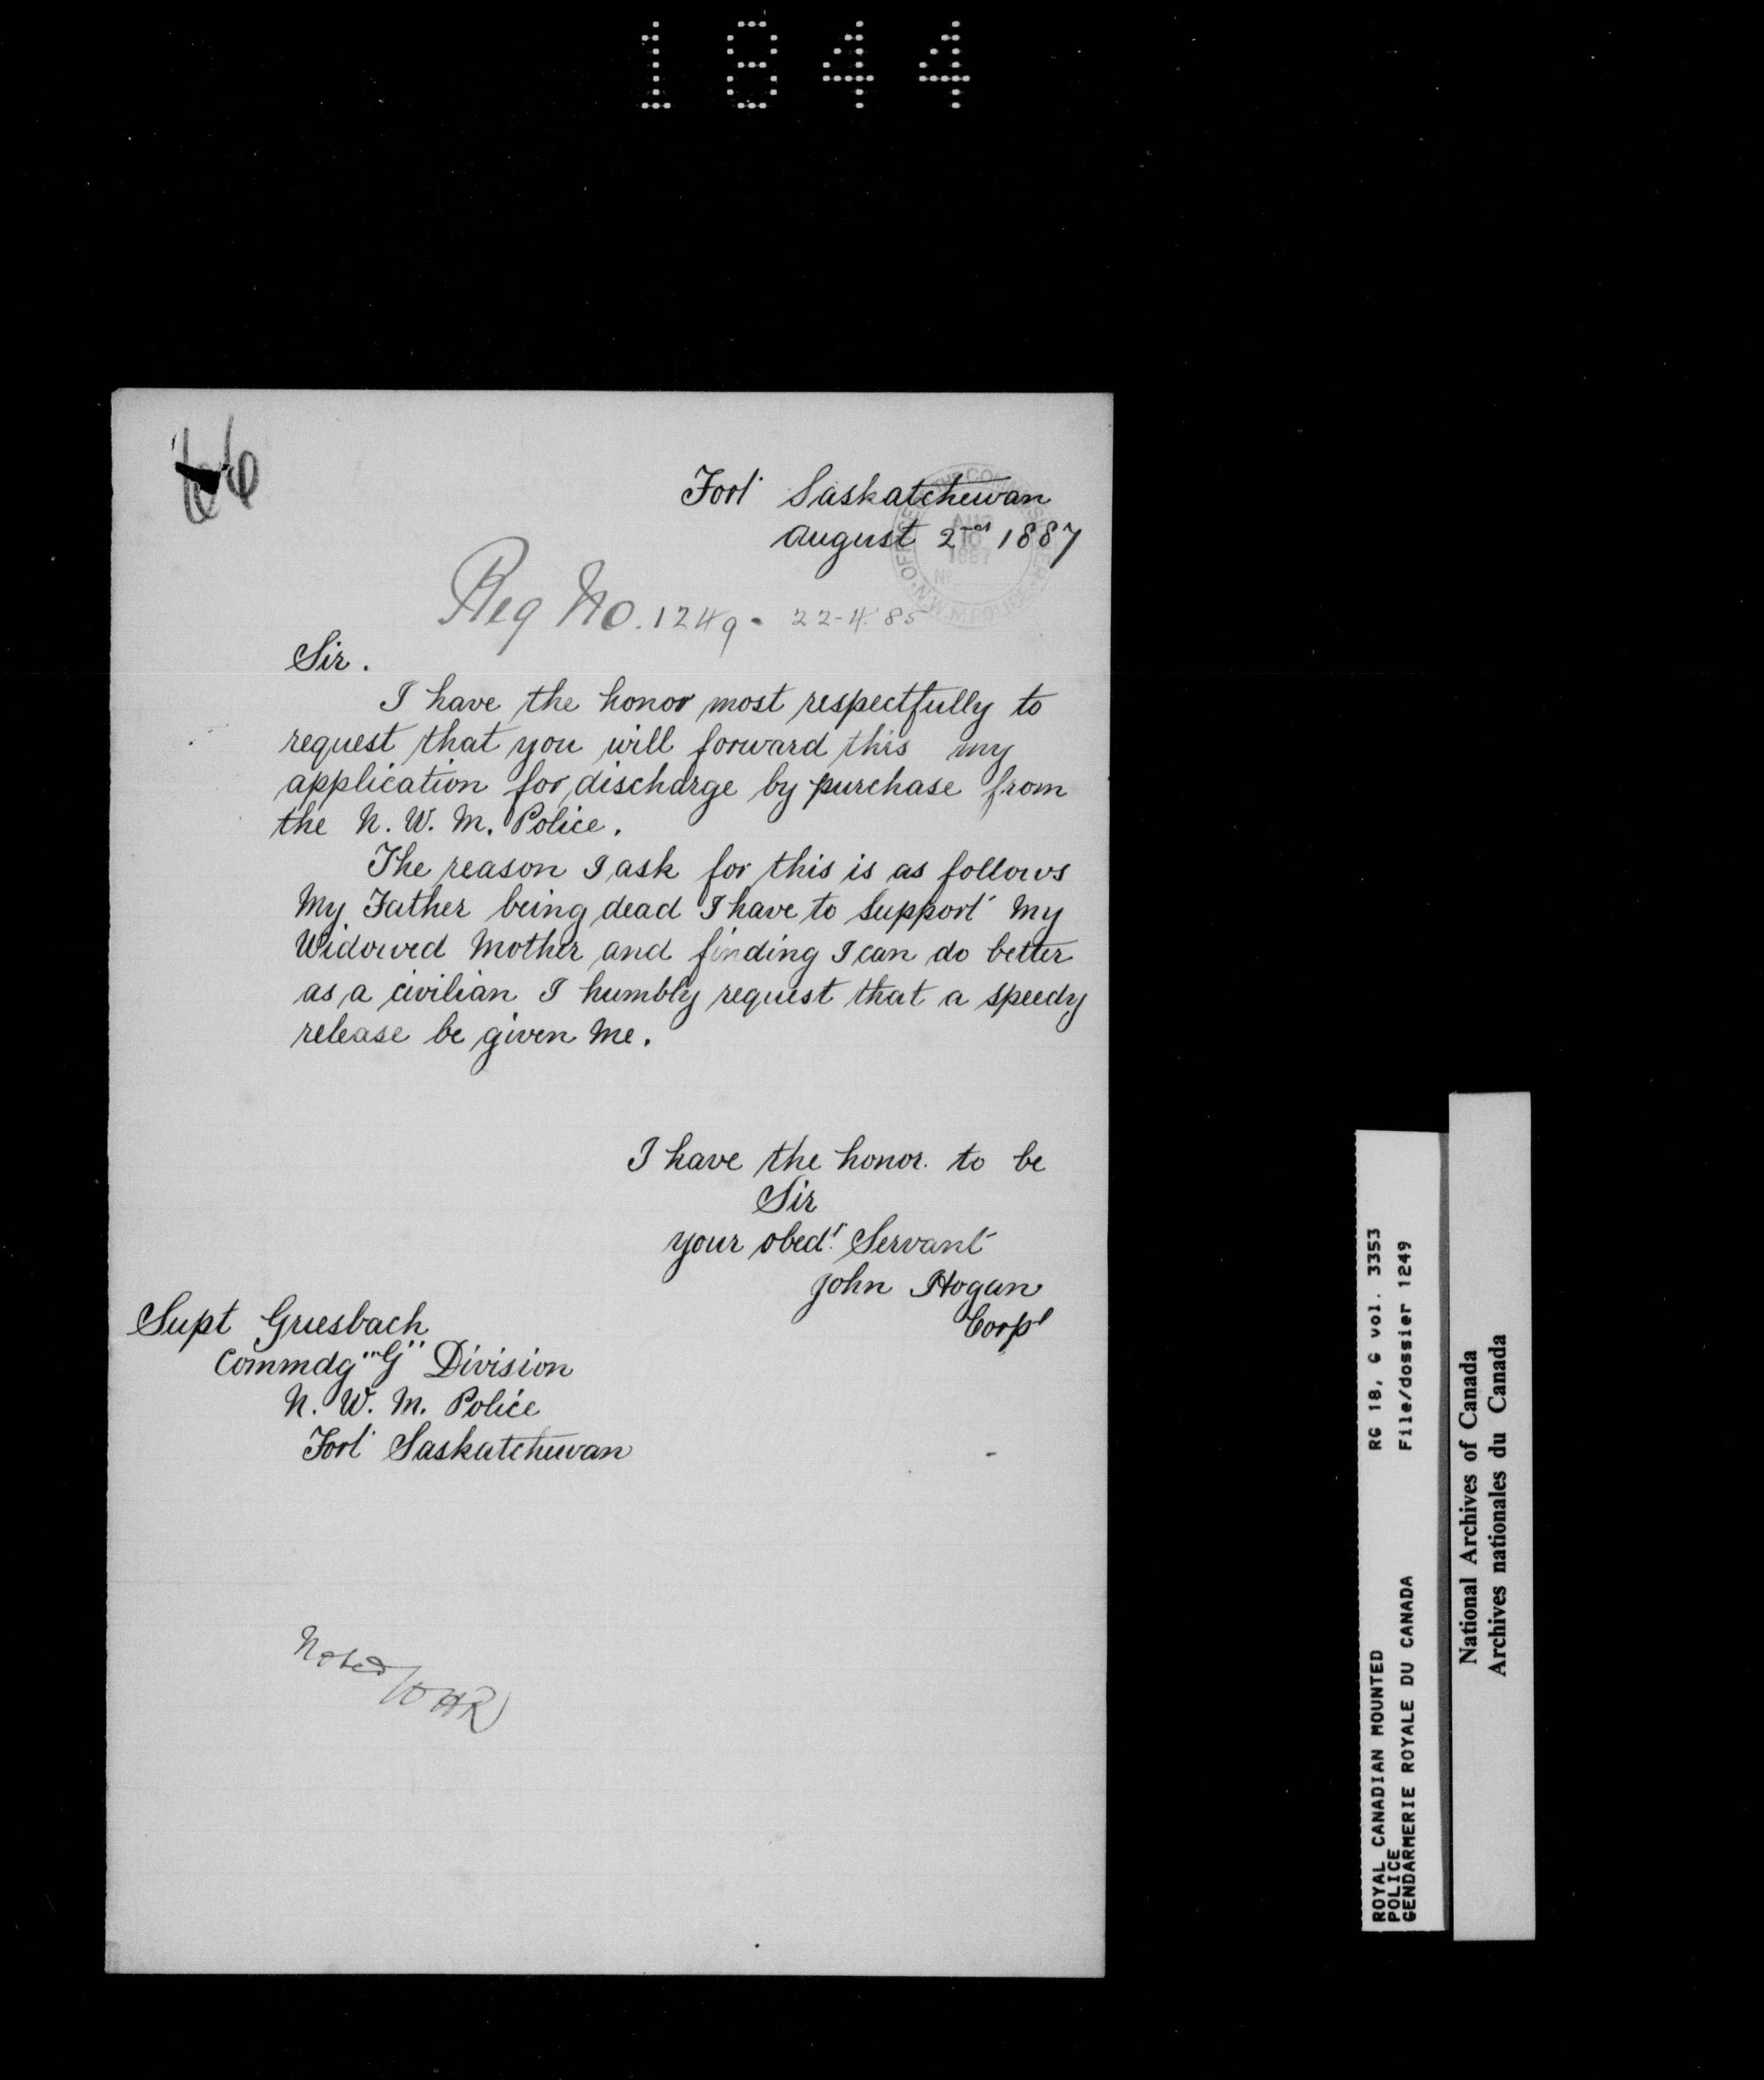 1844
66
Fort Saskatchewan
August 2nd 1887
OFFICE OF THE COMMISSIONER
AUG
10
1887
No
N.W.M. POLICE
Reg No. 1249 - 22-4-85
Sir.
I have the honor most respectfully to
request that you will forward this my
application for discharge by purchase from
the N. W. M. Police.
The reason I ask for this is as follows
My Father being dead I have to support My
Widowed Mother and finding I can do better
as a civilian I humbly request that a speedy
release be given Me.
I have the honor to be
Sir
your obedt. Servant
John Hogan
Corpl
Supt Griesbach
Commdg "G" Division
N. W. M. Police
Fort Saskatchewan
Noted
ROYAL CANADIAN MOUNTED RG 18, G vol. 3353
POLICE
GENDARMERIE ROYALE DU CANADA File/dossier 1249
National Archives of Canada
Archives nationales du Canada